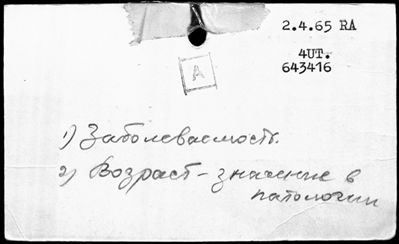 2.4.65 RA
4UT.
643416
A
1) Заболеваемость.
2) Возраст – значение в
патологии